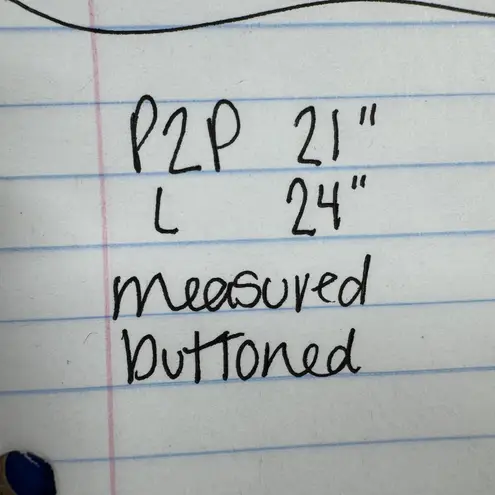 P2P 21"
L 24"
measured
buttoned